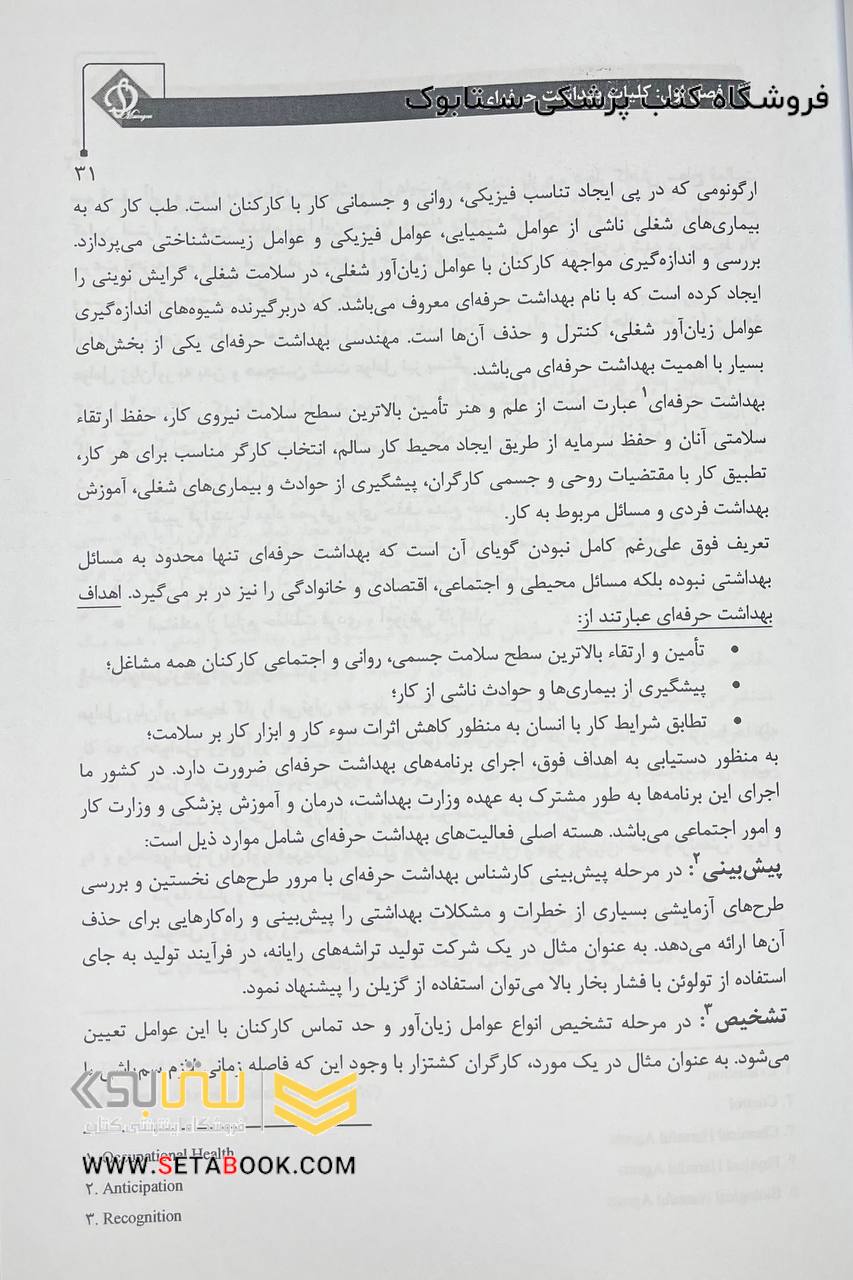 فصل اول: کلیات بهداشت حرفه‌ای
فروشگاه کتب پزشکی ستابوک
۳۱
ارگونومی که در پی ایجاد تناسب فیزیکی، روانی و جسمانی کار با کارکنان است. طب کار که به
بیماری‌های شغلی ناشی از عوامل شیمیایی، عوامل فیزیکی و عوامل زیست‌شناختی می‌پردازد.
بررسی و اندازه‌گیری مواجهه کارکنان با عوامل زیان‌آور شغلی، در سلامت شغلی، گرایش نوینی را
ایجاد کرده است که با نام بهداشت حرفه‌ای معروف می‌باشد. که دربرگیرنده شیوه‌های اندازه‌گیری
عوامل زیان‌آور شغلی، کنترل و حذف آن‌ها است. مهندسی بهداشت حرفه‌ای یکی از بخش‌های
بسیار با اهمیت بهداشت حرفه‌ای می‌باشد.
بهداشت حرفه‌ای۱ عبارت است از علم و هنر تأمین بالاترین سطح سلامت نیروی کار، حفظ ارتقاء
سلامتی آنان و حفظ سرمایه از طریق ایجاد محیط کار سالم، انتخاب کارگر مناسب برای هر کار،
تطبیق کار با مقتضیات روحی و جسمی کارگران، پیشگیری از حوادث و بیماری‌های شغلی، آموزش
بهداشت فردی و مسائل مربوط به کار.
تعریف فوق علی‌رغم کامل نبودن گویای آن است که بهداشت حرفه‌ای تنها محدود به مسائل
بهداشتی نبوده بلکه مسائل محیطی و اجتماعی، اقتصادی و خانوادگی را نیز در بر می‌گیرد. اهداف
بهداشت حرفه‌ای عبارتند از:
• تأمین و ارتقاء بالاترین سطح سلامت جسمی، روانی و اجتماعی کارکنان همه مشاغل؛
• پیشگیری از بیماری‌ها و حوادث ناشی از کار؛
• تطابق شرایط کار با انسان به منظور کاهش اثرات سوء کار و ابزار کار بر سلامت؛
به منظور دستیابی به اهداف فوق، اجرای برنامه‌های بهداشت حرفه‌ای ضرورت دارد. در کشور ما
اجرای این برنامه‌ها به طور مشترک به عهده وزارت بهداشت، درمان و آموزش پزشکی و وزارت کار
و امور اجتماعی می‌باشد. هسته اصلی فعالیت‌های بهداشت حرفه‌ای شامل موارد ذیل است:
پیش‌بینی۲: در مرحله پیش‌بینی کارشناس بهداشت حرفه‌ای با مرور طرح‌های نخستین و بررسی
طرح‌های آزمایشی بسیاری از خطرات و مشکلات بهداشتی را پیش‌بینی و راه‌کارهایی برای حذف
آن‌ها ارائه می‌دهد. به عنوان مثال در یک شرکت تولید تراشه‌های رایانه، در فرآیند تولید به جای
استفاده از تولوئن با فشار بخار بالا می‌توان استفاده از گزیلن را پیشنهاد نمود.
تشخیص۳: در مرحله تشخیص انواع عوامل زیان‌آور و حد تماس کارکنان با این عوامل تعیین
می‌شود. به عنوان مثال در یک مورد، کارگران کشتزار با وجود این که فاصله زمانی لازم سم‌پاشی با
ستابوک
فروشگاه اینترنتی کتاب
۱. Occupational Health
WWW.SETABOOK.COM
۲. Anticipation
۳. Recognition